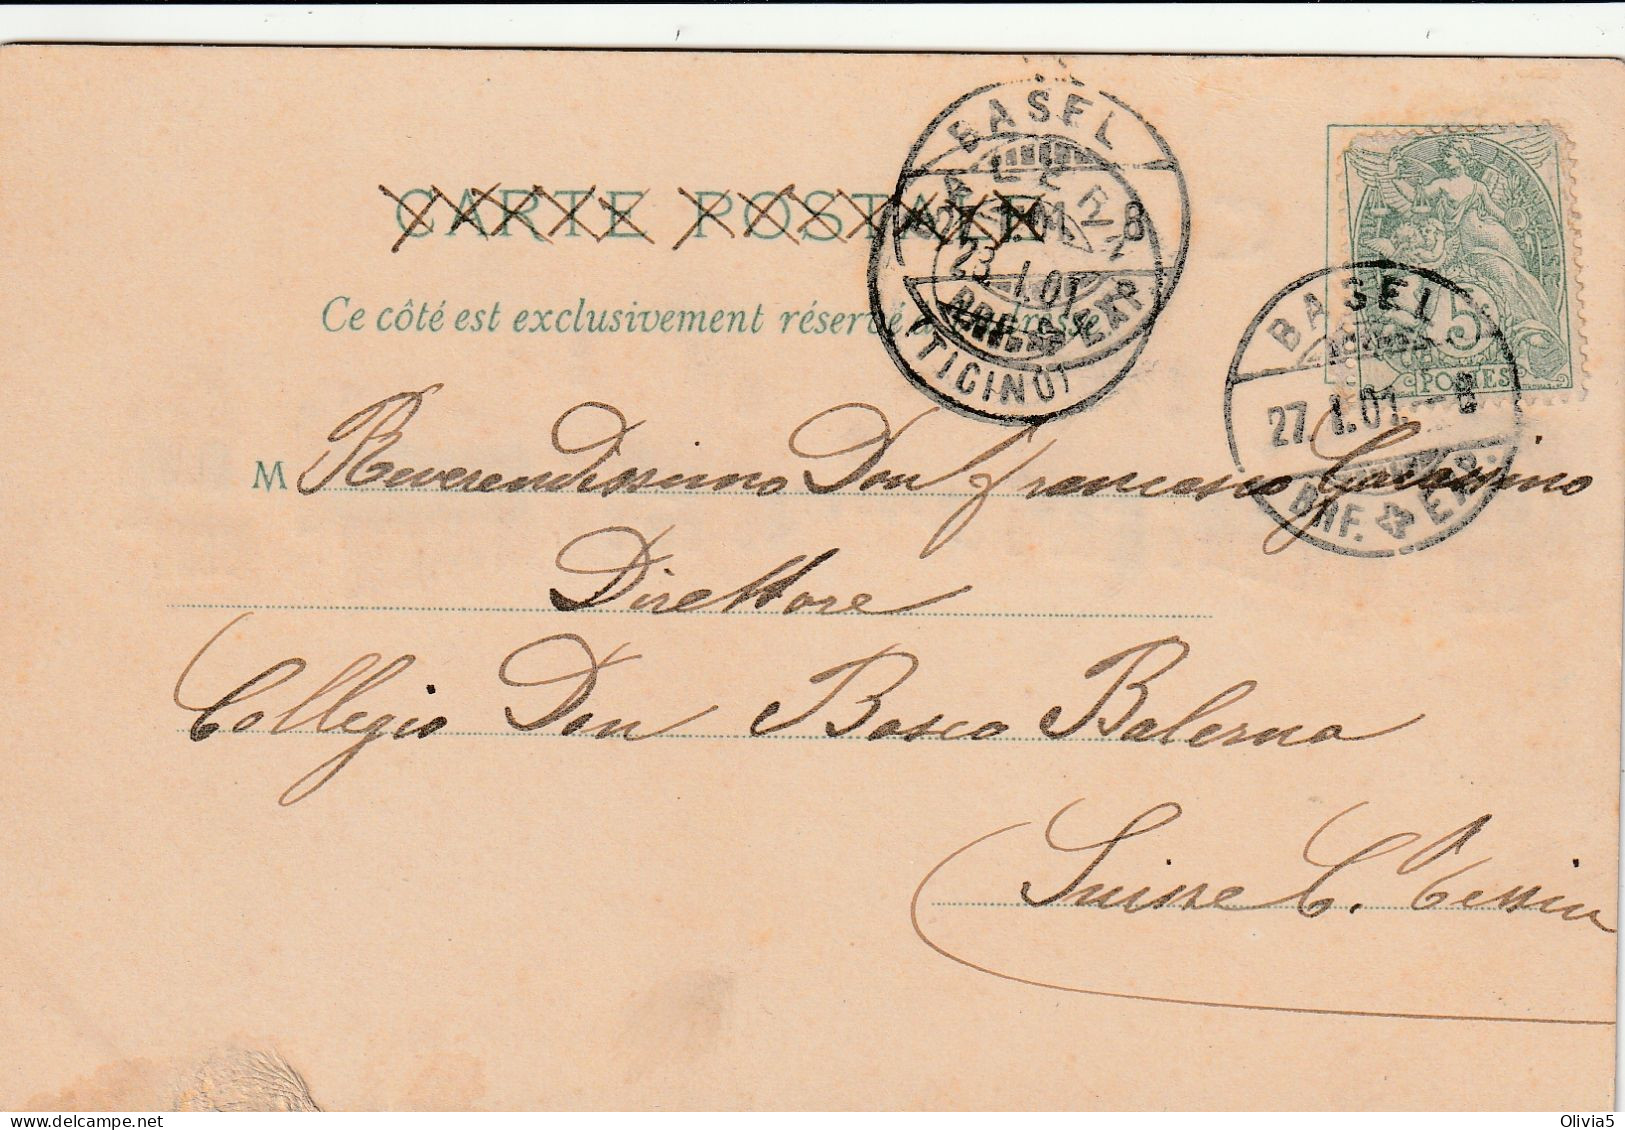 CARTE POSTALE
Ce côté est exclusivement réservé à l'adresse
BASEL
27.I.01.-8
BRF. EXP.
BALERNA
23.I.01
(TICINO)
5
POSTES
BASEL
27.I.01.-8
BRF. EXP.
M Reverendissimo Don Francesco
Direttore
Collegio Don Bosco Balerna
Suisse C. Tessin
Olivia5